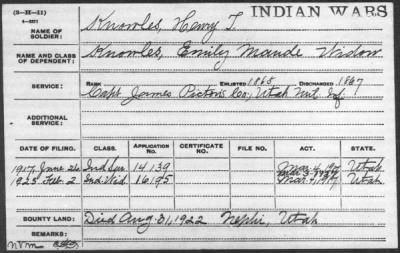 (3-III-11)
4-2371
INDIAN WARS
NAME OF SOLDIER: Knowles, Henry T.
NAME AND CLASS OF DEPENDENT: Knowles, Emily Maude Widow
SERVICE: RANK ENLISTED 1865 DISCHARGED 1867
Capt James Picton's Co; Utah Mil Inf
ADDITIONAL SERVICE:
DATE OF FILING. CLASS. APPLICATION NO. CERTIFICATE NO. FILE NO. ACT. STATE.
1917 June Ind Sur 14139 Mar 4, 1917 Utah
Mar 3-1927
1923 Feb 2 Ind Wid 16195 Mar 4, 1917 Utah
BOUNTY LAND: Died Aug. 31, 1922 Nephi, Utah
REMARKS: